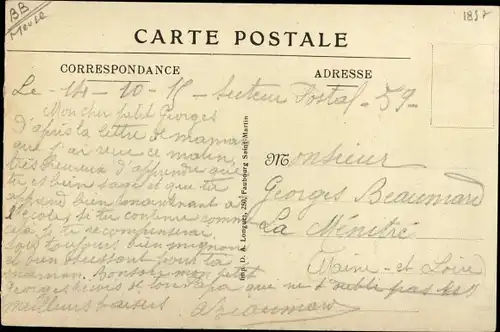 BB
Meuse
1852
CARTE POSTALE
CORRESPONDANCE
ADRESSE
Le 14-10-15 - Secteur Postal - 59 -
Mon cher petit Georges
d'après la lettre de maman
que j'ai reçue ce matin,
très heureux d'apprendre que
tu es bien sage et que tu
apprend bien maintenant a
l'école, si tu continue comme
cela je te recompenserai
sois toujours bien mignon
et bien obeissant pour ta
maman. Bonsoir mon petit
Georges
meilleurs baisers
GBeaumard
Imp. D. A. Longuet, 250, Faubourg Saint-Martin
Monsieur
Georges Beaumard
La Ménitré
Maine-et-Loire